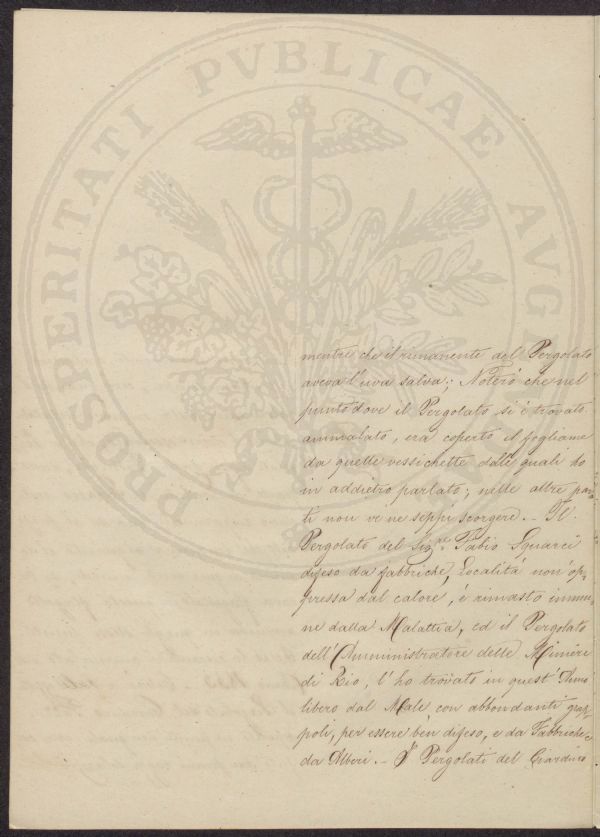 PROSPERITATI PVBLICAE AVGE
mentre che il rimanente del Pergolato
aveva l'uva salva; Noterò che nel
punto dove il Pergolato si è trovato
ammalato, era coperto il fogliame
da quelle vessichette dalle quali ho
in addietro parlato; nelle altre par-
ti non ve ne seppi scorgere. _ Il
Pergolato del Sig.re Fabio Squarci
difeso da fabbriche, Località non op-
pressa dal calore, è rimasto immu-
ne dalla Malattia, ed il Pergolato
dell'Amministratore delle Miniere
di Rio, l'ho trovato in quest'Anno
libero dal Male con abbondanti grap-
poli, per essere ben difeso, e da Fabbriche e
da Alberi. _ I Pergolati del Giardino